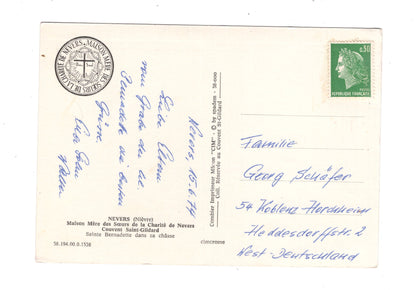 MAISON MÈRE DES SŒURS DE LA CHARITÉ DE NEVERS
Nevers, 15.6.74
Liebe Eltern
vom Grabe der hl.
Bernadette die besten
Grüsse.
Eure
0,50
REPUBLIQUE FRANÇAISE
Combier Imprimeur Mâcon "CIM" - © by spadem - 58-000
Coll. Réservée au Couvent St-Gildard
Familie
Georg Schäfer
54 Koblenz-Horchheim
Heddesdorffstr. 2
West-Deutschland
NEVERS (Nièvre)
Maison Mère des Sœurs de la Charité de Nevers
Couvent Saint-Gildard
Sainte Bernadette dans sa châsse
58.194.00.0.1538
cimcrome